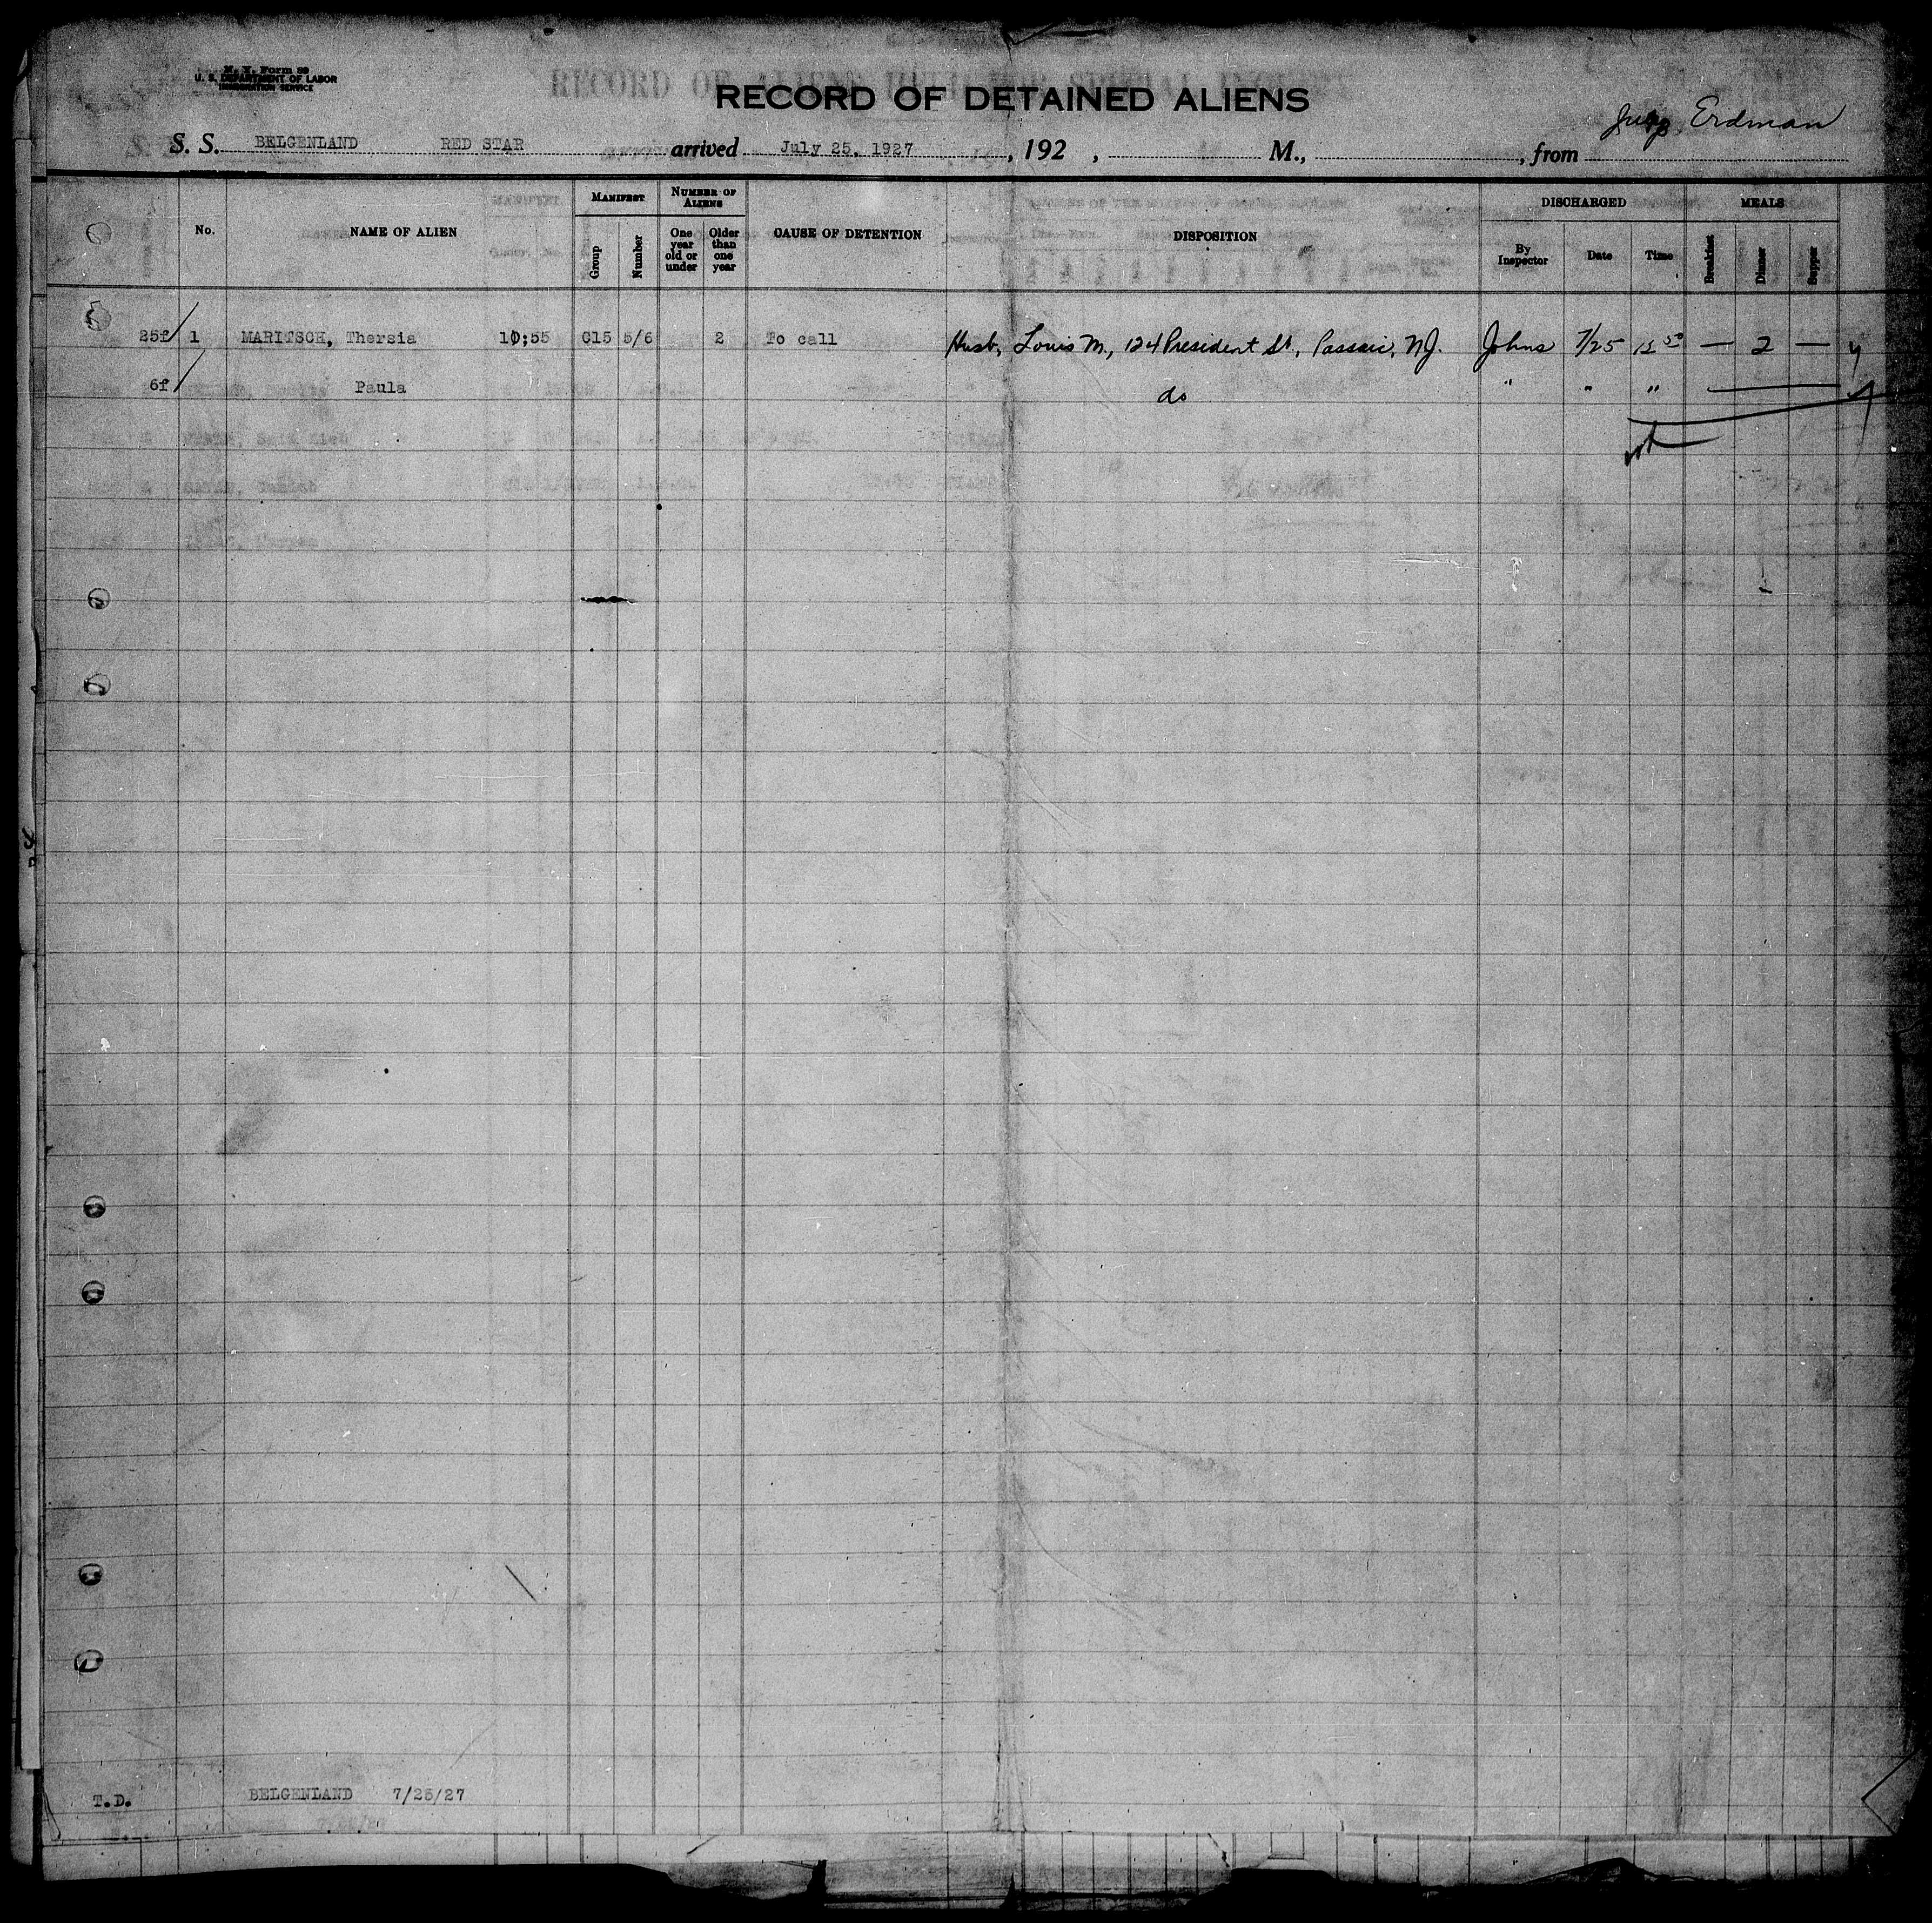 N. Y. Form 89
U. S. DEPARTMENT OF LABOR
IMMIGRATION SERVICE
RECORD OF DETAINED ALIENS
Erdman
S. S. BELGENLAND RED STAR arrived July 25, 1927, 192 , M., , from
No. NAME OF ALIEN MANIFEST Group Number NUMBER OF ALIENS One year old or under Older than one year CAUSE OF DETENTION DISPOSITION DISCHARGED By Inspector Date Time MEALS Breakfast Dinner Supper
25f 1 MARITSCH, Thersia 10:55 C15 5/6 2 To call Husb, Louis M., 124 President St., Passaic, N.J. Johns 7/25 12 50 — 2 —
6f Paula do " " "
T.D. BELGENLAND 7/25/27